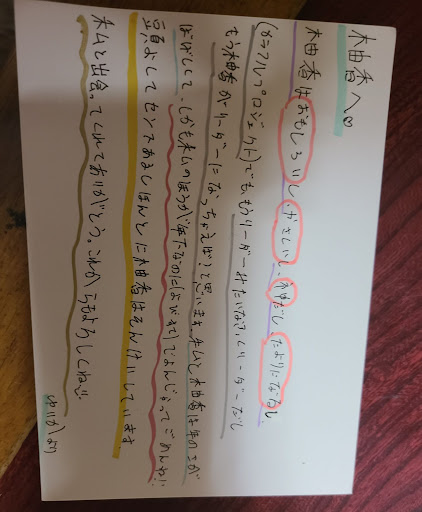 柚香へ♡
柚香はおもしろいし、やさしいし、神だし、たよりになるし
(カラフルプロジェクト)でも、もうリーダーみたいな?、リーダーだし
もう柚香がリーダーになっちゃえば?と思います。私と柚香は年のさが
しかも私のほうが年下なのによびすてでよんじゃってごめんね!!
頭よしてセンスあるしほんとに柚香はそんけいしています。
私と出会ってくれてありがとう。これからもよろしくね!!
ゆいかより